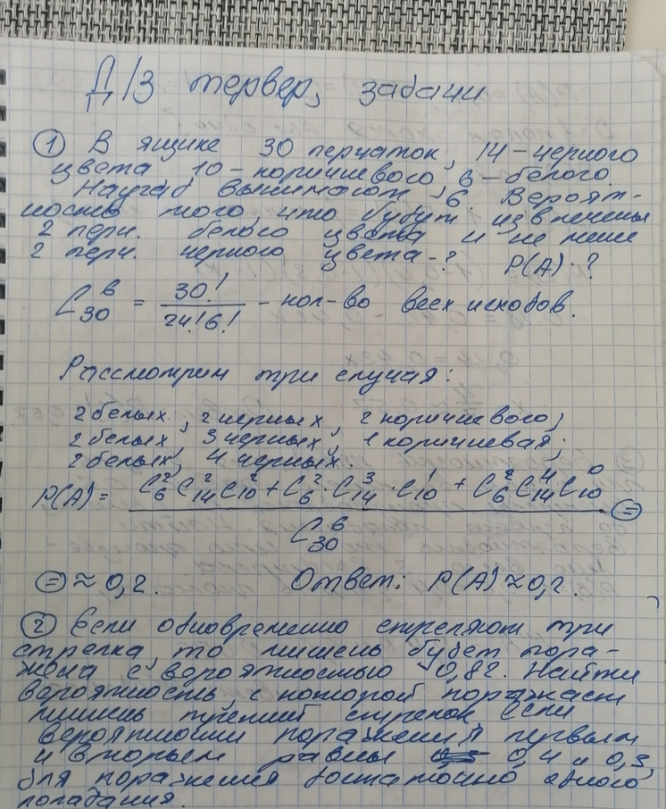 Д/З тервер, задачи
① В ящике 30 перчаток, 14 - черного
цвета 10 - коричневого, 6 - белого.
Наугад вынимают 6. Вероят-
ность того, что будут извлечены
2 перч. белого цвета и не менее
2 перч. черного цвета - ? P(A) - ?
C₃₀⁶ = 30! / 24!6! - кол-во всех исходов.
Рассмотрим три случая:
2 белых, 2 черных, 2 коричневого;
2 белых, 3 черных, 1 коричневая;
2 белых, 4 черных.
P(A) = (C₆² C₁₄² C₁₀² + C₆² · C₁₄³ · C₁₀¹ + C₆² C₁₄⁴ C₁₀⁰) / C₃₀⁶ ⊜
⊜ ≈ 0,2. Ответ: P(A) ≈ 0,2.
② Если одновременно стреляют три
стрелка, то мишень будет пора-
жена с вероятностью 0,82. Найти
вероятность, с которой поражает
мишень третий стрелок, если
вероятности поражения первым
и вторым равны 0,4 и 0,3,
для поражения достаточно одного
попадания.